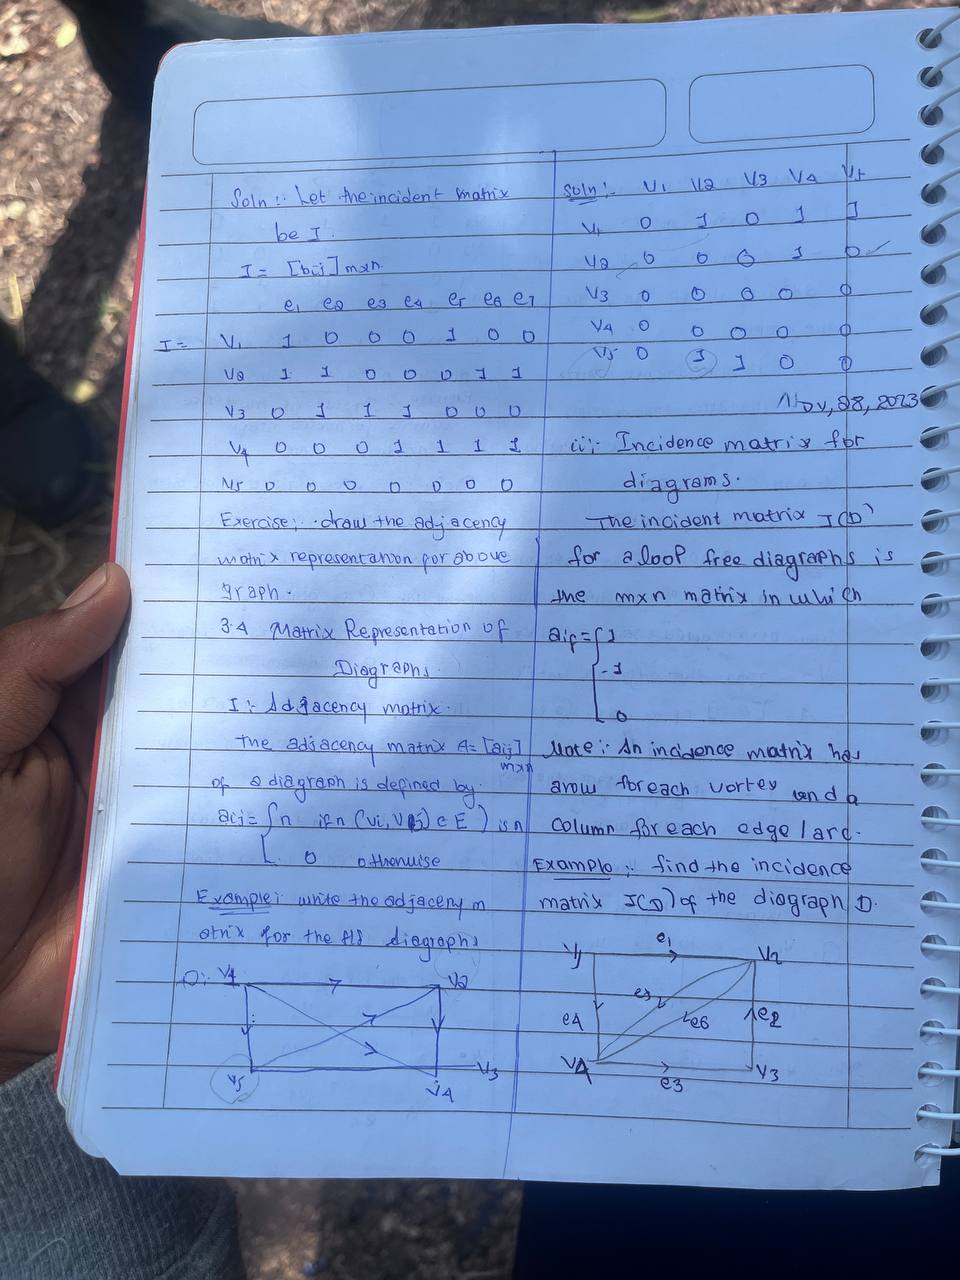 Soln :- Let the incident matrix
be I.
I = [bij] mxn.
e1 e2 e3 e4 e5 e6 e7
I = V1 1 0 0 0 1 0 0
V2 1 1 0 0 0 1 1
V3 0 1 1 1 0 0 0
V4 0 0 0 1 1 1 1
V5 0 0 0 0 0 0 0
Exercise; draw the adjacency
matrix representation for above
graph.
3.4 Matrix Representation of
Diagraphs.
I :- Adjacency matrix.
The adjacency matrix A = [aij]
mxn
of a diagraph is defined by.
aij = { n if n (vi, vj) ∈ E ) is n
0 otherwise
Example; write the adjaceny m
atrix for the diagraphs
V1 V2
V5 V4 V3
Soln :- V1 V2 V3 V4 V5
V1 0 1 0 1 1
V2 0 0 0 1 0
V3 0 0 0 0 0
V4 0 0 0 0 0
V5 0 1 1 0 0
Nov, 28, 2023
ii; Incidence matrix for
diagrams.
The incident matrix I(D)
for a loop free diagraphs is
the mxn matrix in which
aij = { 1
-1
0
Note :- An incidence matrix has
arow foreach vortex and a
column for each edge / arc.
Example ;- find the incidence
matrix I(D) of the diograph D.
V1 e1 V2
e5
e4 e6 e2
V4 e3 V3